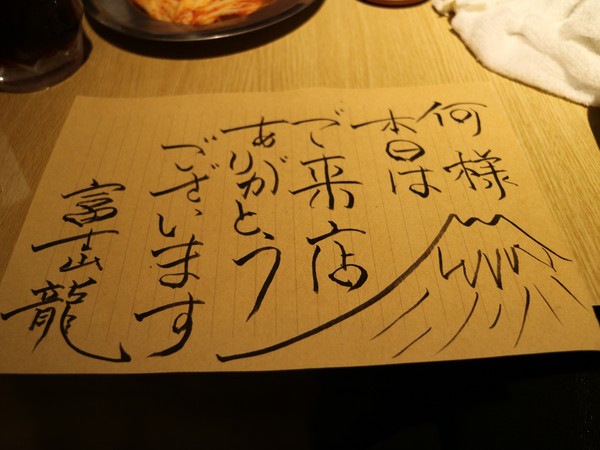 何様
本日は
ご来店
ありがとう
ございます
富士龍